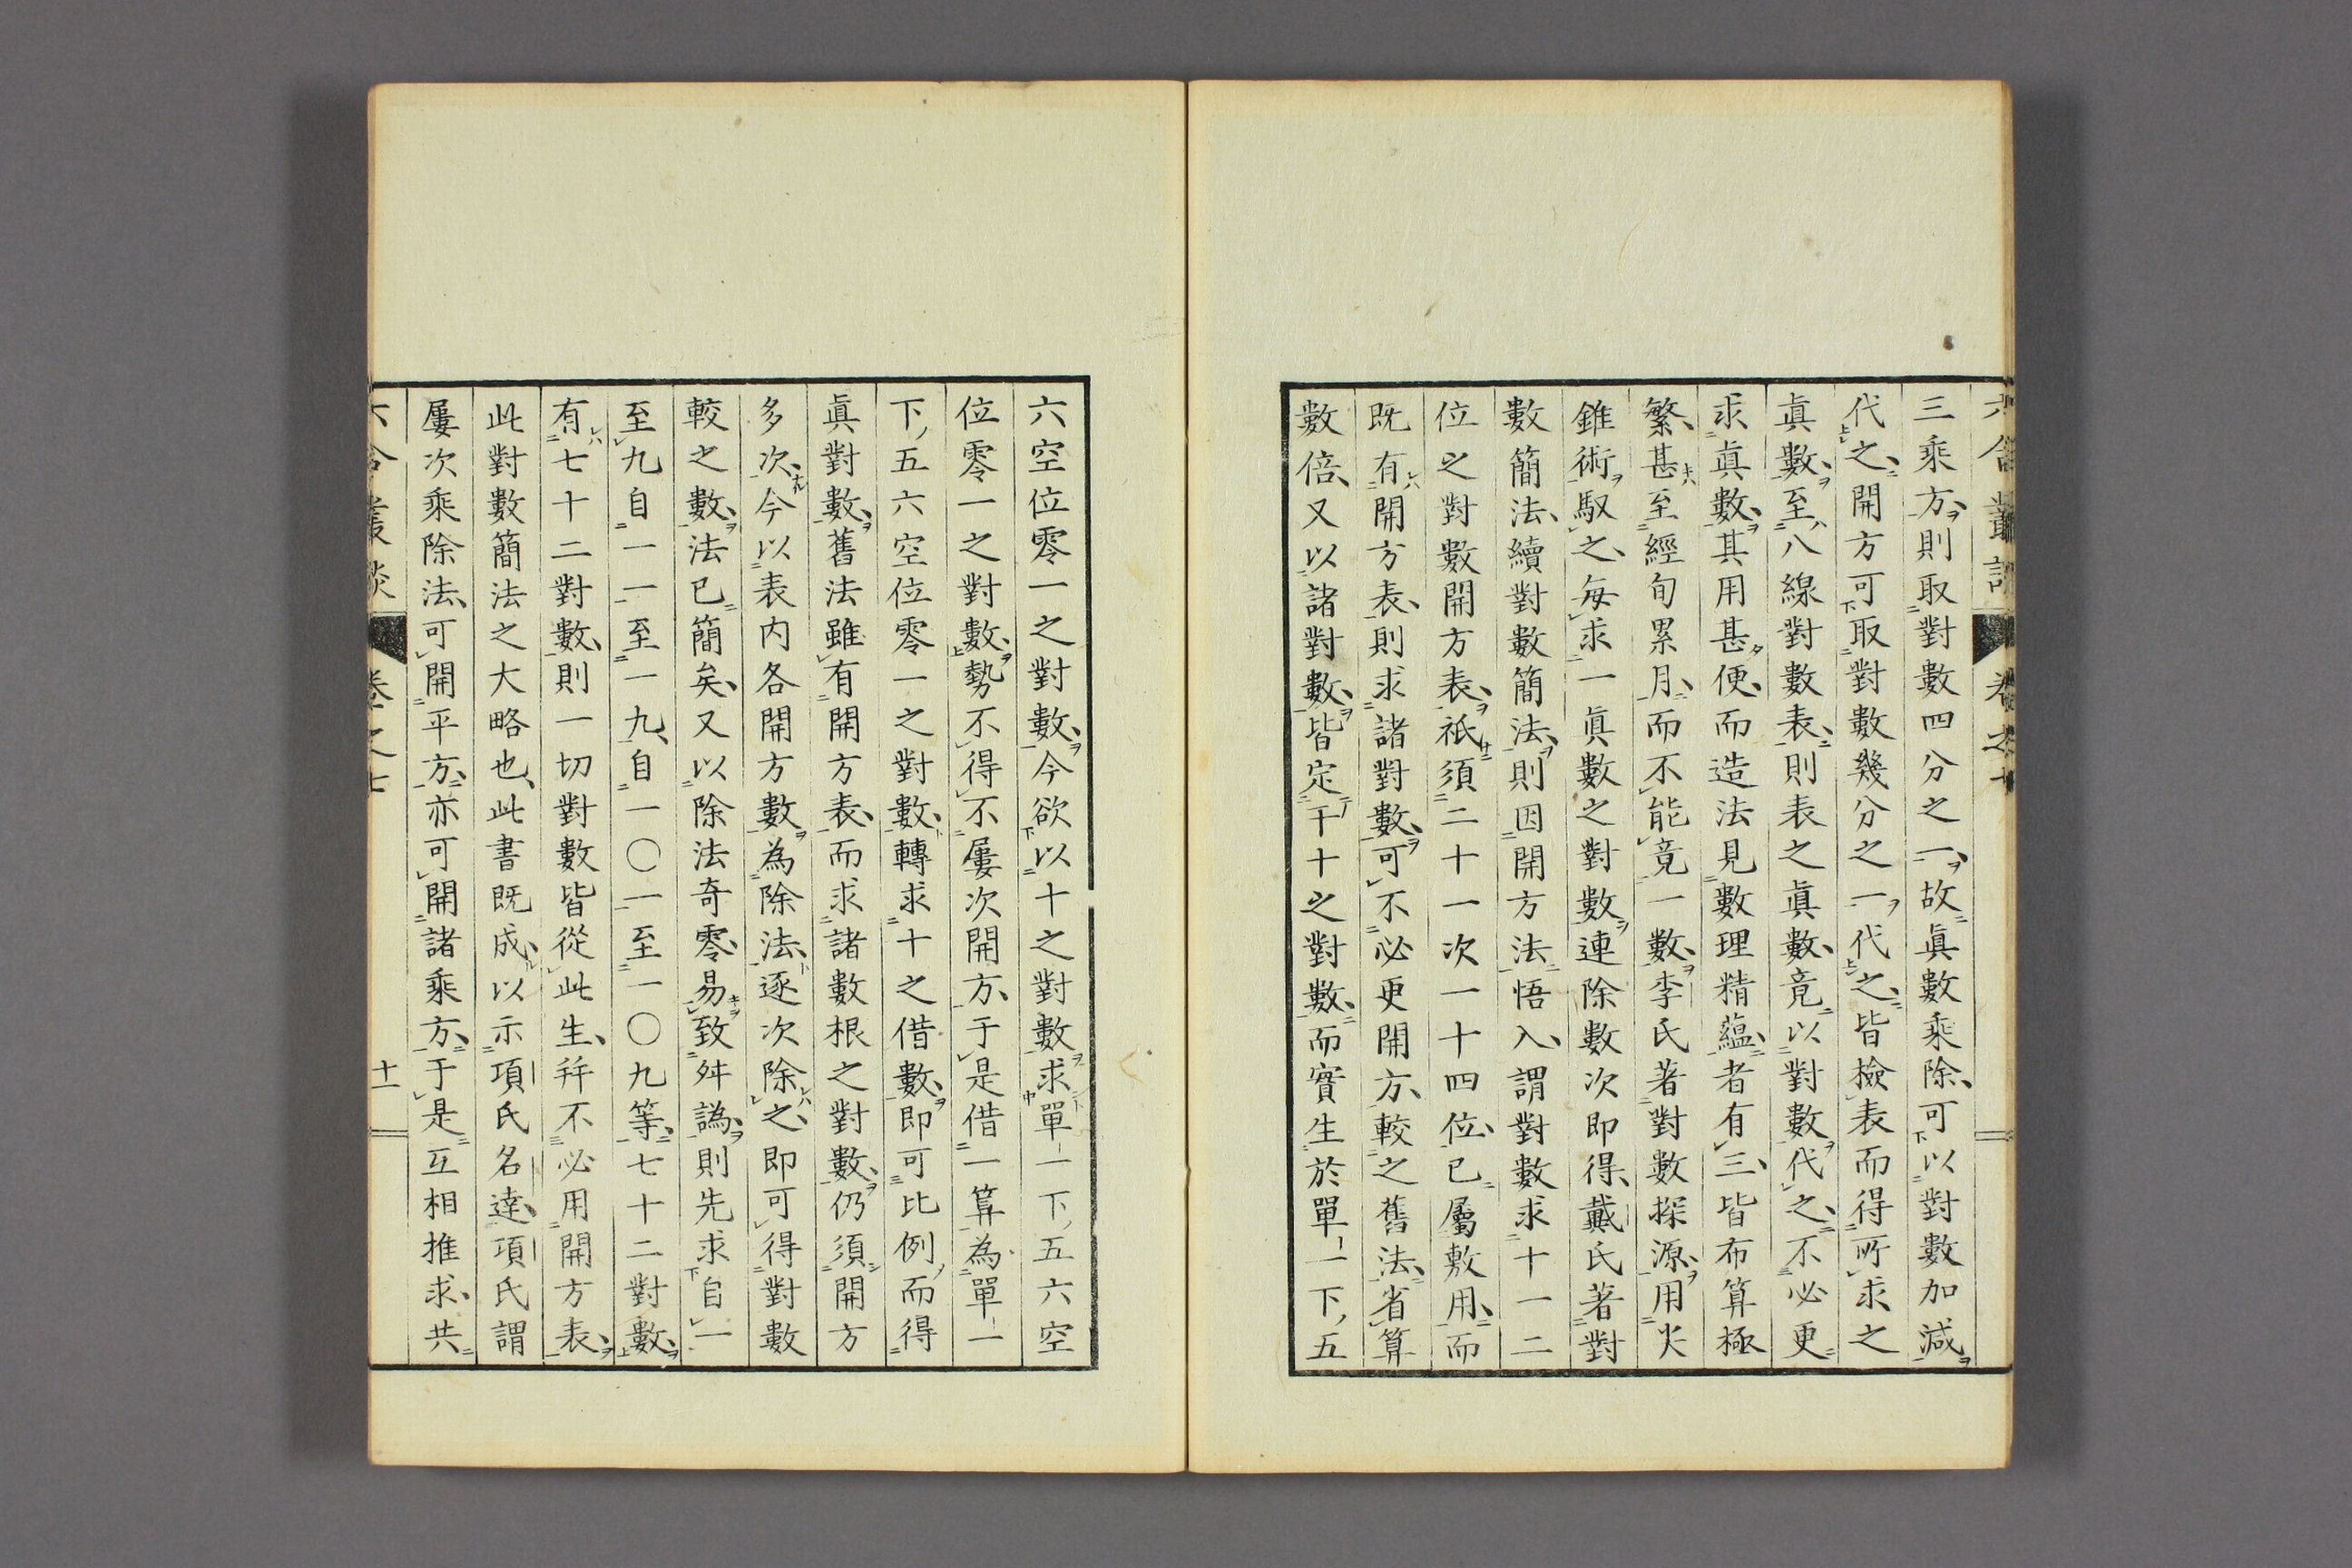 三乘方則取對數四分之一故眞數乘除可以對數加減
代之開方可取對數幾分之一代之皆檢表而得所求之
眞數至八線對數表則表之眞數竟以對數代之不必更
求眞數其用甚便而造法見數理精蘊者有三皆布算極
繁甚至經旬累月而不能竟一數李氏著對數探源用尖
錐術馭之每求一眞數之對數連除數次即得戴氏著對
數簡法續對數簡法則因開方法悟入謂對數求十一二
位之對數開方表祇須二十一次一十四位已屬敷用而
既有開方表則求諸對數可不必更開方較之舊法省算
數倍又以諸對數皆定于十之對數而實生於單一下五
六空位零一之對數今欲以十之對數求單一下五六空
位零一之對數勢不得不屢次開方于是借一算為單一
下五六空位零一之對數轉求十之借數即可比例而得
眞對數舊法雖有開方表而求諸數根之對數仍須開方
多次今以表内各開方數為除法逐次除之即可得對數
較之數法已簡矣又以除法奇零易致舛譌則先求自一
至九自一一至一九自一〇一至一〇九等七十二對數
有七十二對數則一切對數皆從此生拜不必用開方表
此對數簡法之大略也此書既成以示項氏名達項氏謂
屢次乘除法可開平方亦可開諸乘方于是互相推求共
六合叢談 卷之七 十一